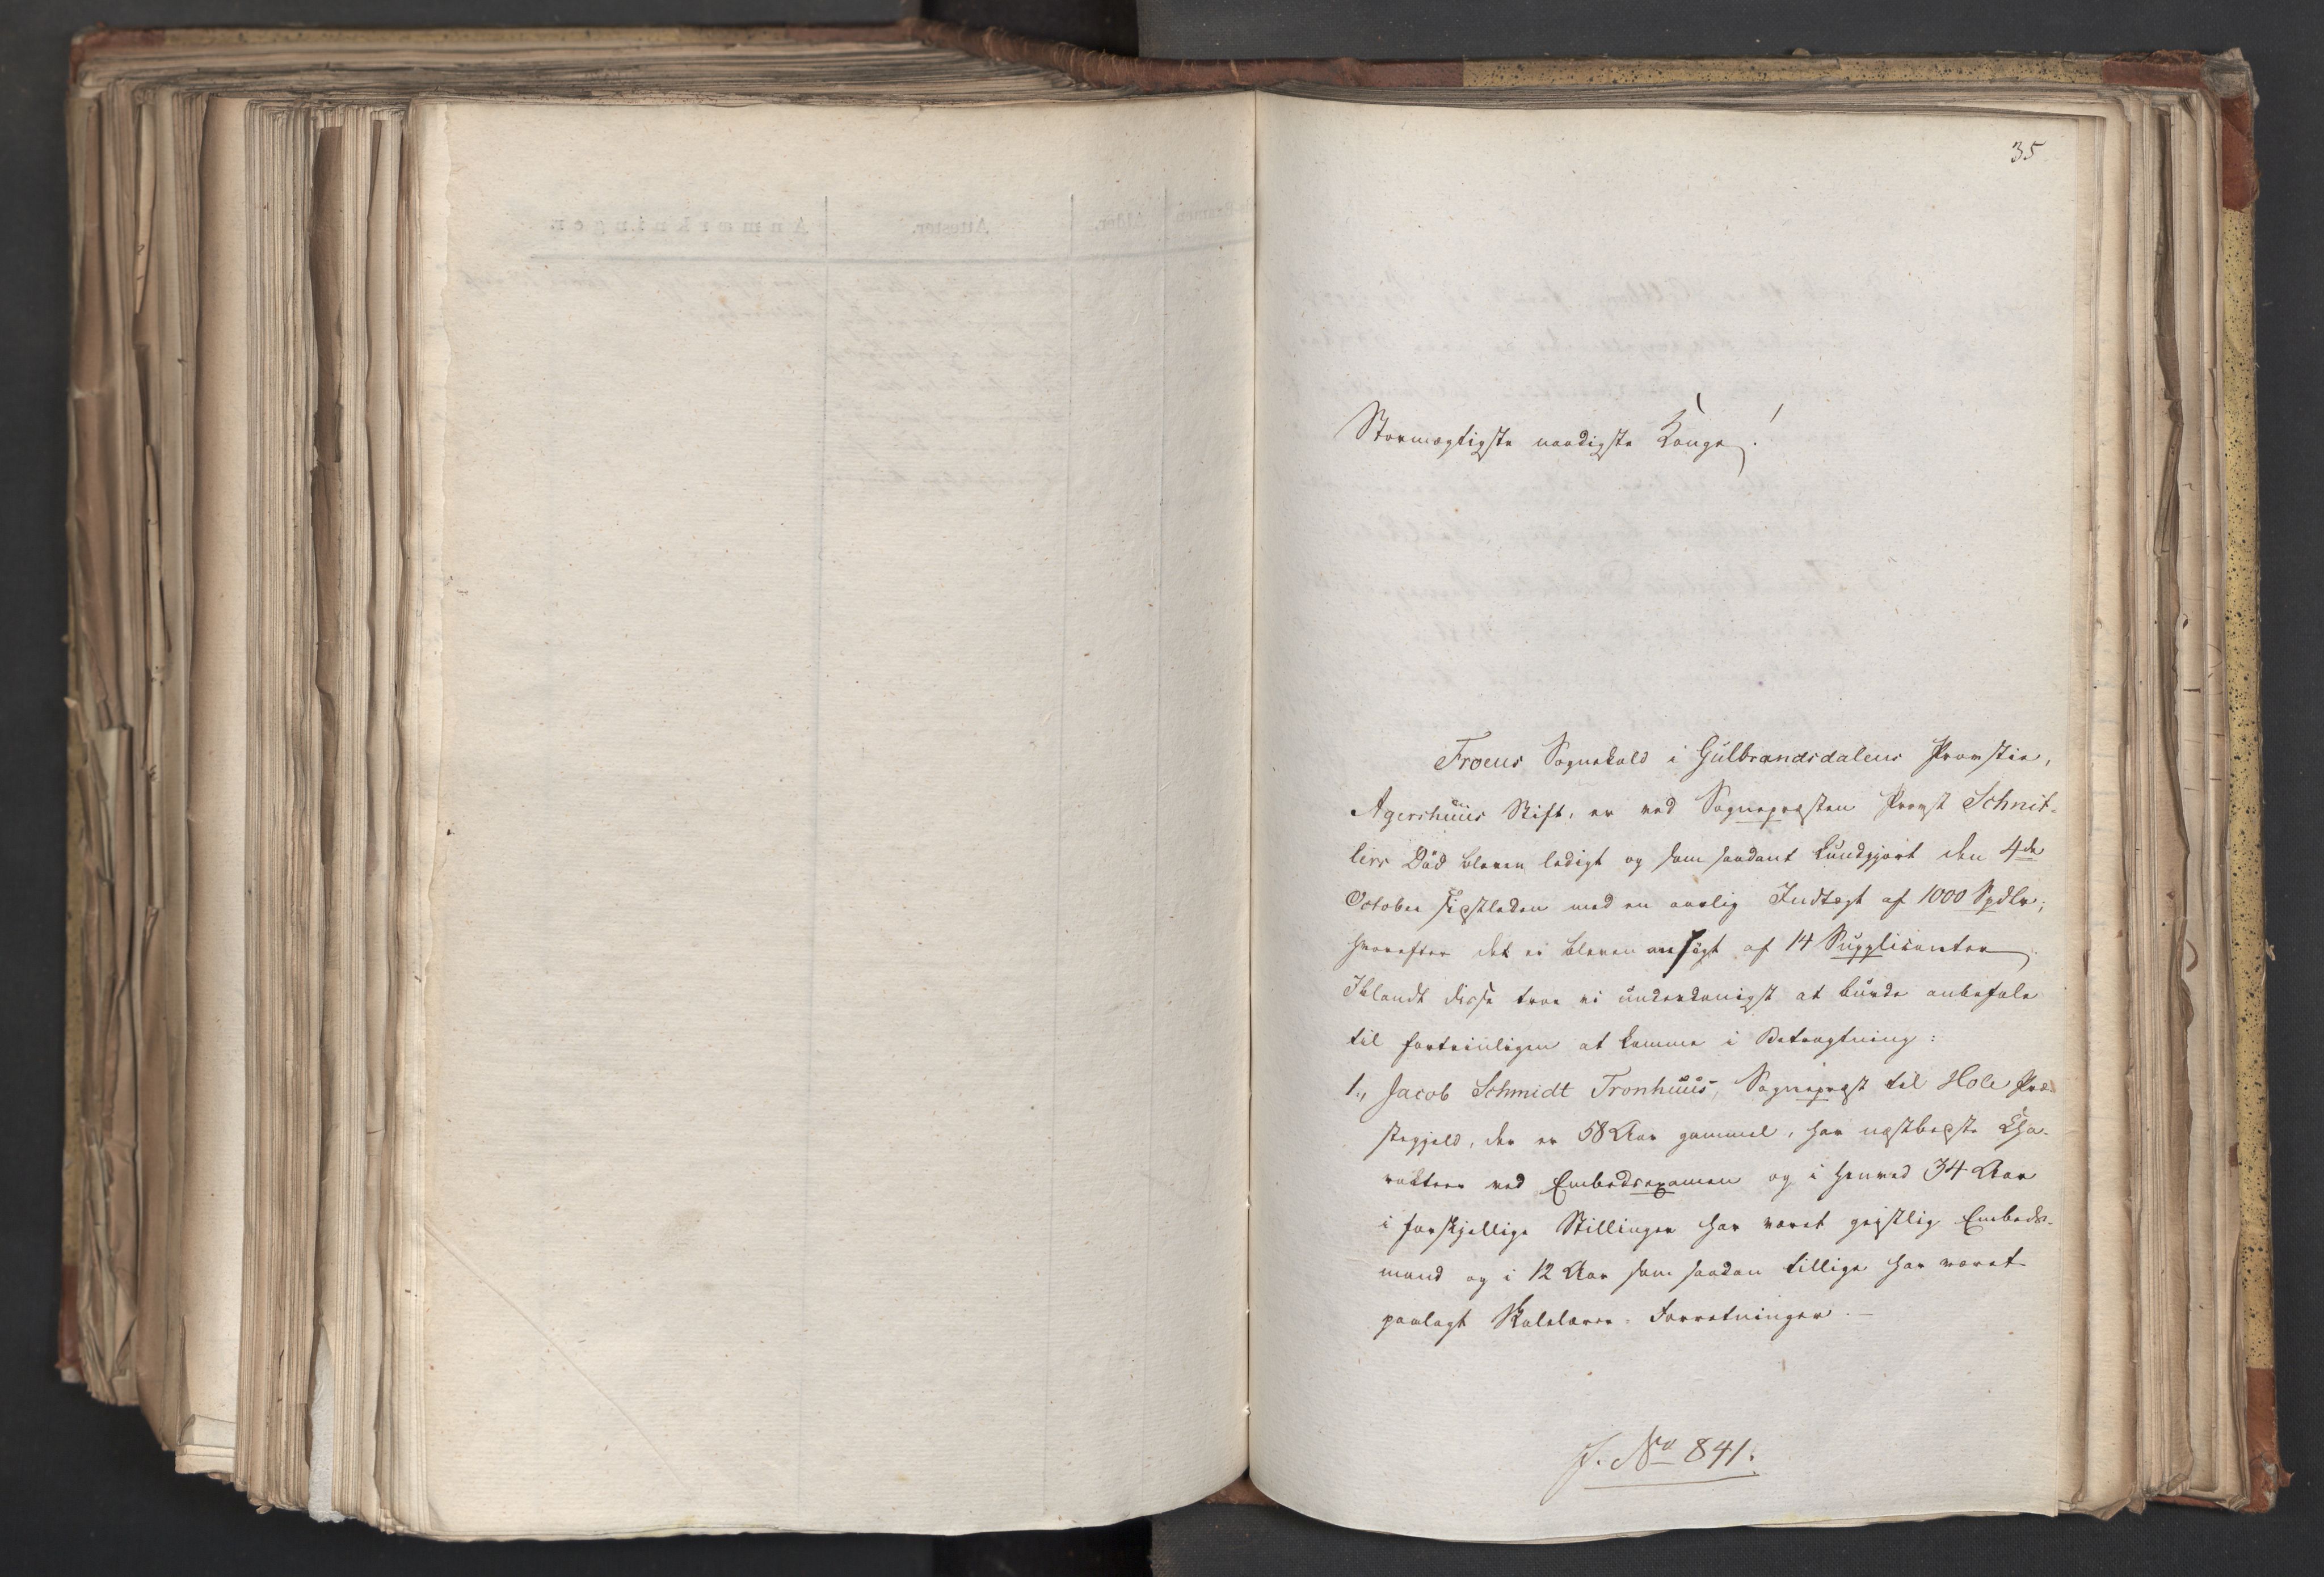 35
Stormægtigste naadigste Konge!
Froens Sognekald i Gulbrandsdalens Provstie,
Agershuus Stift, er ved Sognepræsten Provst Schnit-
lers Död bleven ledigt og som saadant kundgjort den 4de
October sidstleden med en aarlig Indtægt af 1000 Spdlr;
hvorefter det er bleven ansögt af 14 Supplicanter.
Iblandt disse troe vi underdanigst at burde anbefale
til fortrinligen at komme i Betragtning:
1., Jacob Schmidt Tronhuus, Sognepræst til Hole Præ-
stegjeld, der er 58 Aar gammel, har næstbedste Cha-
rakteer ved Embedsexamen og i henved 34 Aar
i forskjellige Stillinger har været geistlig Embeds-
mand og i 12 Aar som saadan tillige har været
paalagt Skolelærer-Forretninger.—
J. No 841.